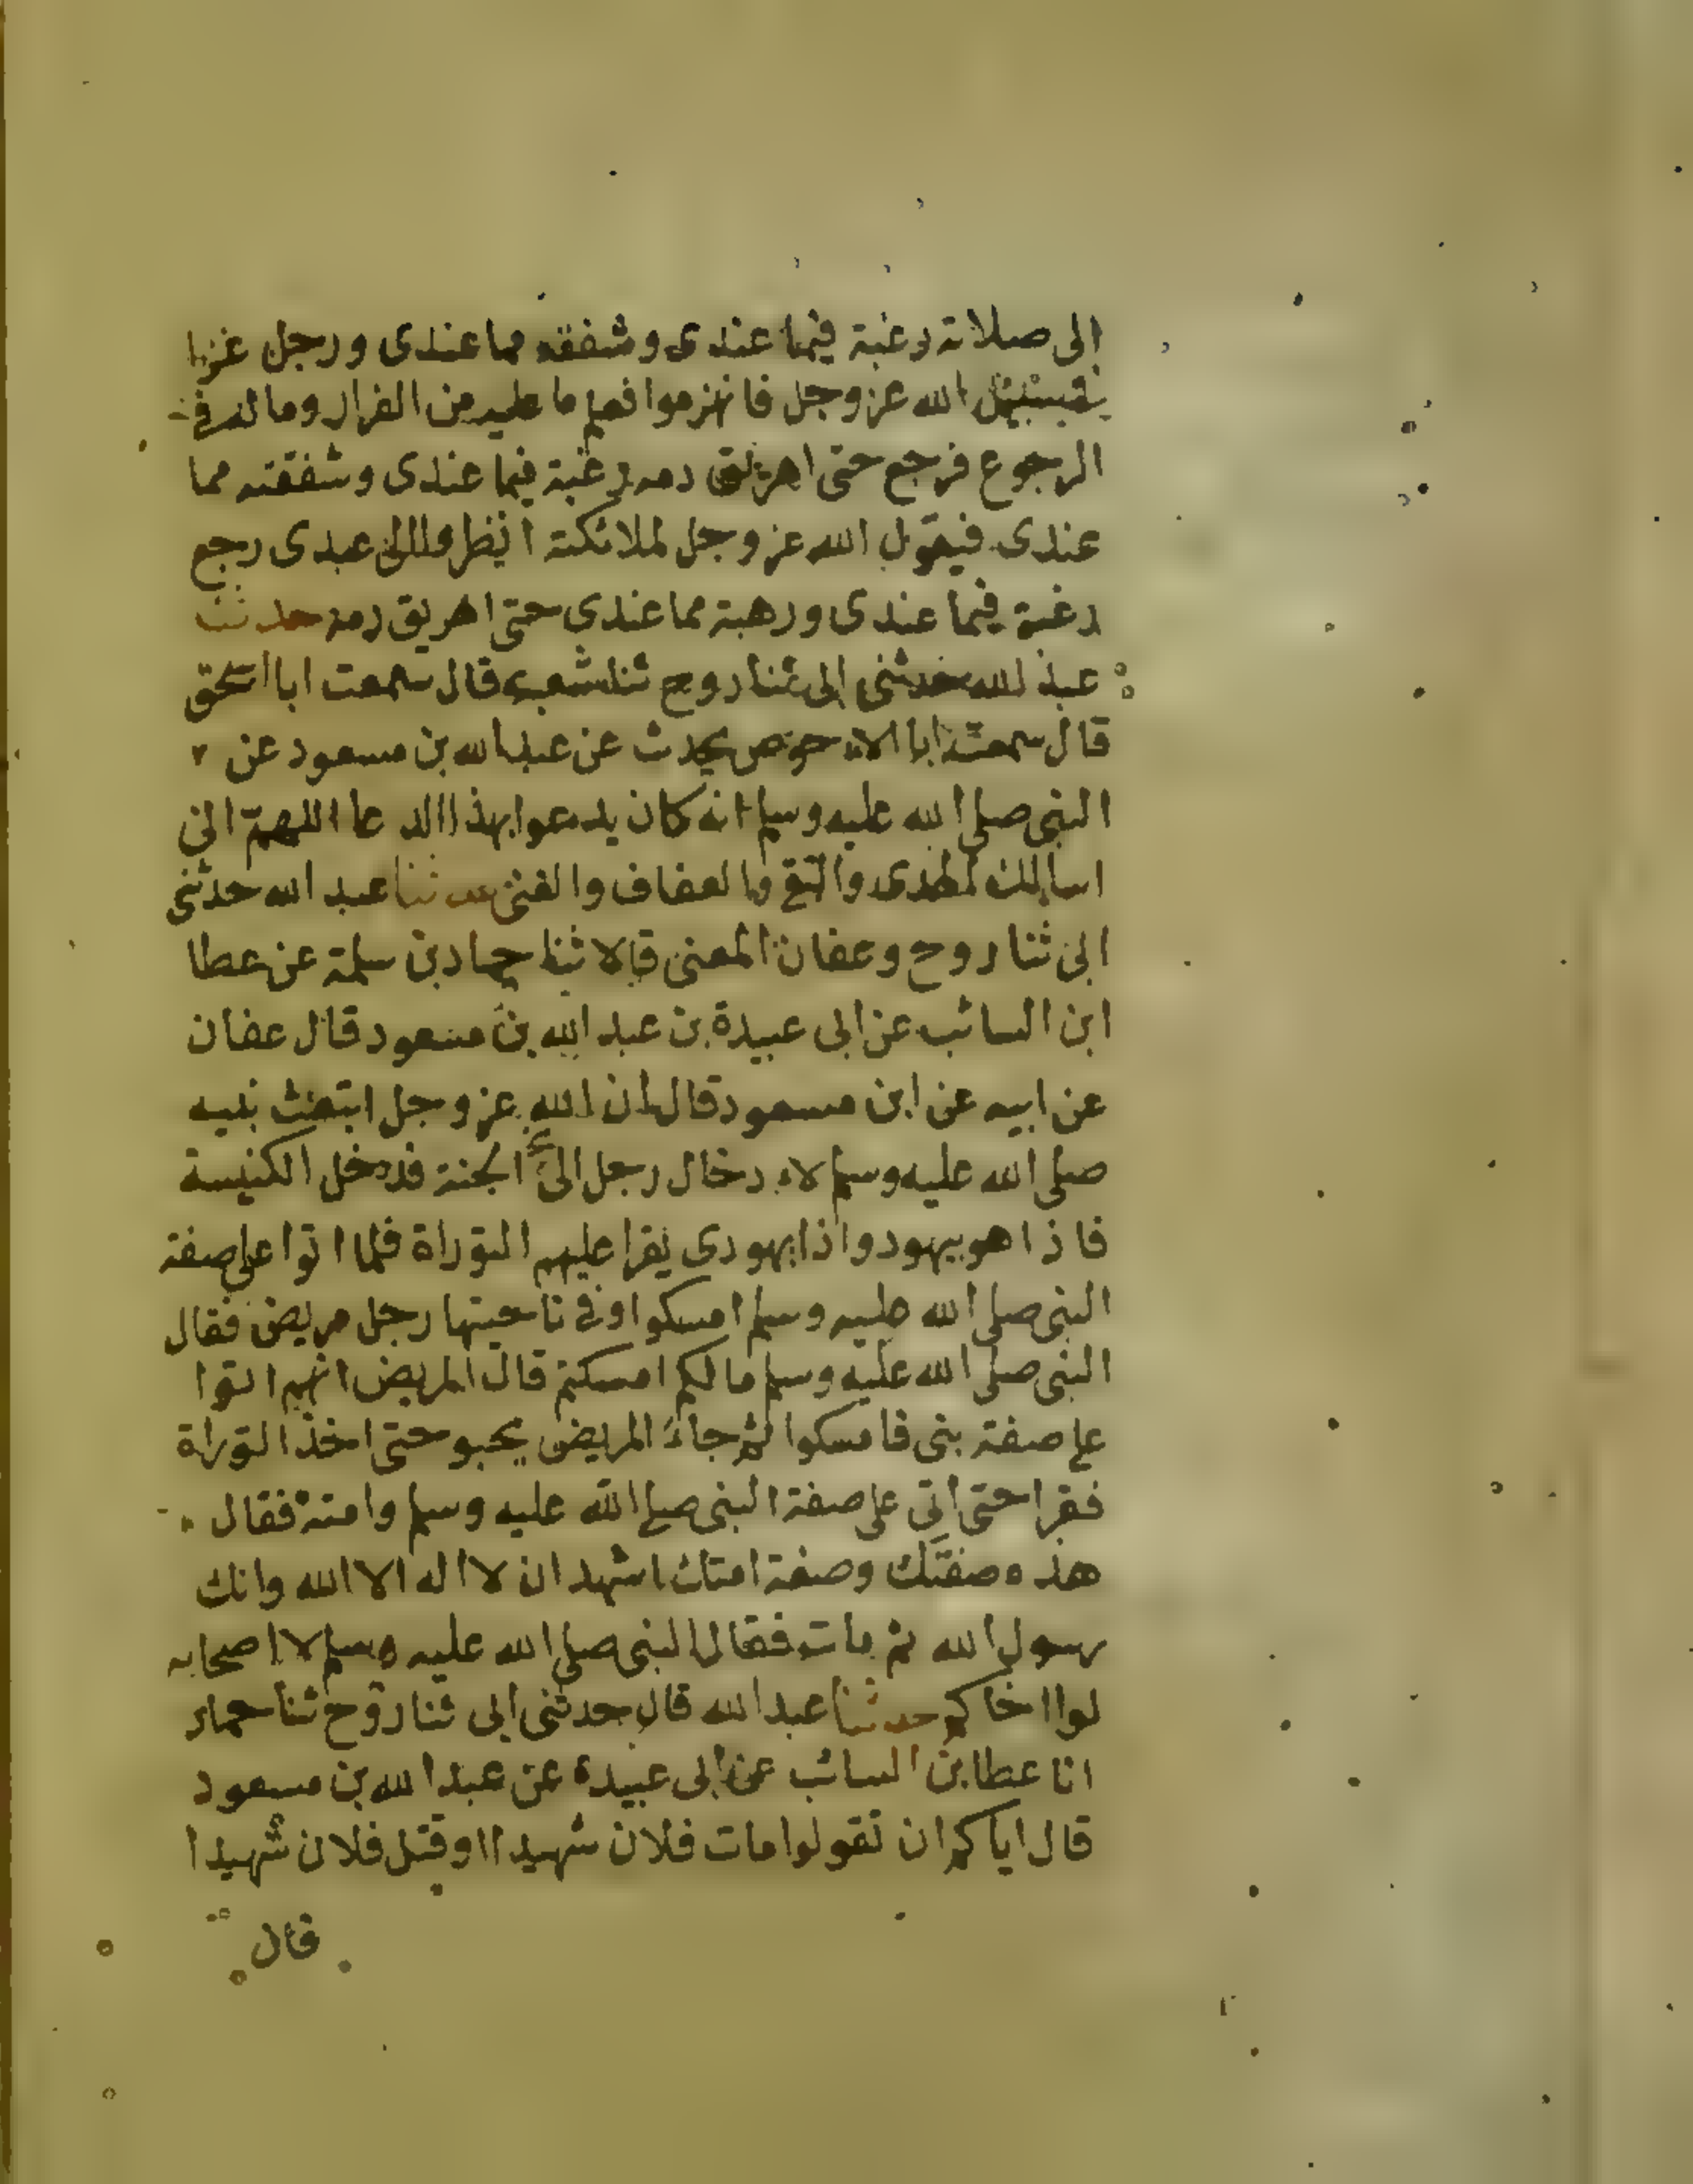 الى صلاته رغبة فيما عندى وشفقه مما عندى ورجل غزا
فى سبيل الله عز وجل فانهزموا فعلم ما عليه من الفرار وماله فى
الرجوع فرجع حتى اهريق دمه رغبة فيما عندى وشفقته مما
عندى فيقول الله عز وجل لملائكته انظروا الى عبدى رجع
رغبة فيما عندى ورهبة مما عندى حتى اهريق دمه حدثنا
عبد الله حدثنى ابى ثنا روح ثنا شعبه قال سمعت ابا اسحق
قال سمعت ابا الاحوص يحدث عن عبد الله بن مسعود عن
النبى صلى الله عليه وسلم انه كان يدعوا بهذا الدعا اللهم انى
اسالك الهدى والتقى والعفاف والغنى حدثنا عبد الله حدثنى
ابى ثنا روح وعفان المعنى قالا ثنا حماد بن سلمة عن عطا
ابن السائب عن ابى عبيدة بن عبد الله بن مسعود قال عفان
عن ابيه عن ابن مسعود قال ان الله عز وجل ابتعث نبيه
صلى الله عليه وسلم لادخال رجل الى الجنة فدخل الكنيسة
فاذا هو بيهود واذا يهودى يقرا عليهم التوراة فلما اتوا على صفة
النبى صلى الله عليه وسلم امسكوا وفى ناحيتها رجل مريض فقال
النبى صلى الله عليه وسلم مالكم امسكتم قال المريض انهم اتوا
على صفة نبى فامسكوا ثم جاء المريض يحبو حتى اخذ التوراة
فقرا حتى اتى على صفة النبى صلى الله عليه وسلم وامته فقال
هذه صفتك وصفة امتك اشهد ان لا اله الا الله وانك
رسول الله ثم مات فقال النبى صلى الله عليه وسلم لاصحابه
لوا اخاكم حدثنا عبد الله قال حدثنى ابى ثنا روح ثنا حماد
انا عطا بن السائب عن ابى عبيدة عن عبد الله بن مسعود
قال اياكم ان تقولوا مات فلان شهيدا او قتل فلان شهيدا
قال